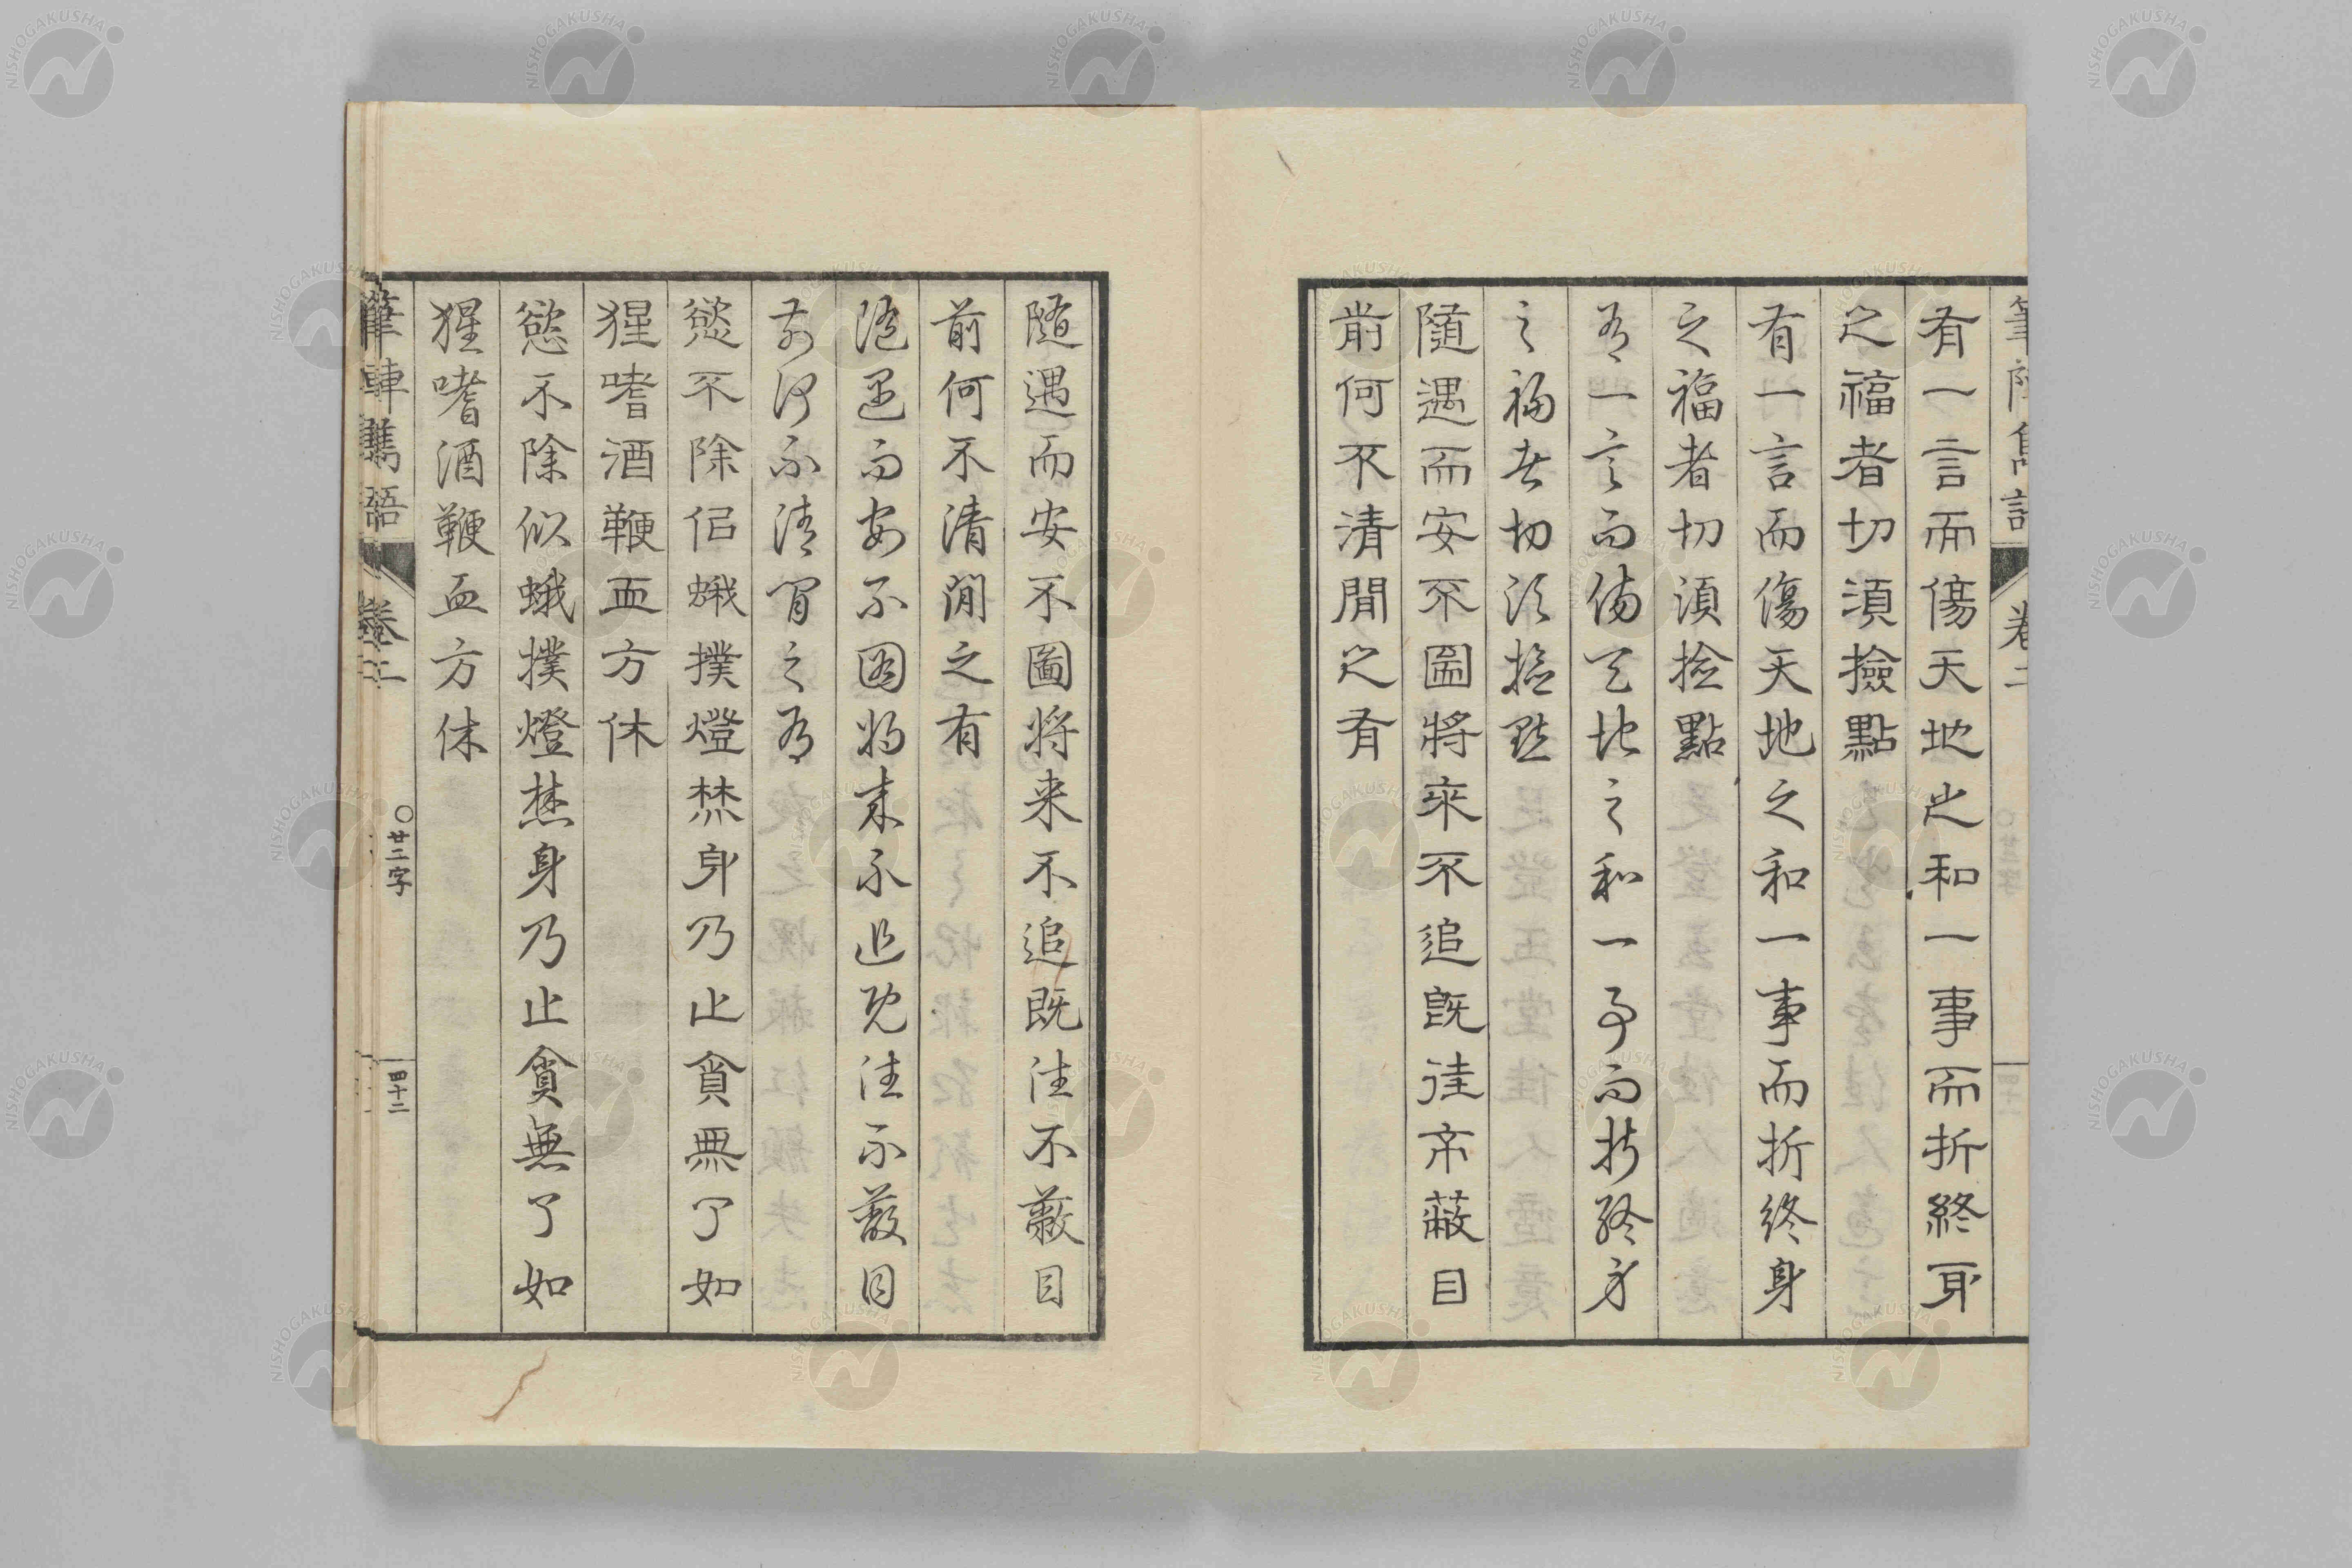 有一言而傷天地之和一事而折終身
之福者切須撿點
有一言而傷天地之和一事而折終身
之福者切須撿點
有一言而傷天地之和一事而折終身
之福者切須撿點
隨遇而安不圖將來不追既往不蔽目
前何不清閒之有
卷二
隨遇而安不圖将来不追既往不蔽目
前何不清閒之有
隨遇而安不圖将来不追既往不蔽目
前何不清閒之有
慾不除佀蛾撲燈焚身乃止貪無了如
猩嗜酒鞭血方休
慾不除似蛾撲燈焚身乃止貪無了如
猩嗜酒鞭血方休
語
卷二
〇廿二字
四十二
NISHOGAKUSHA